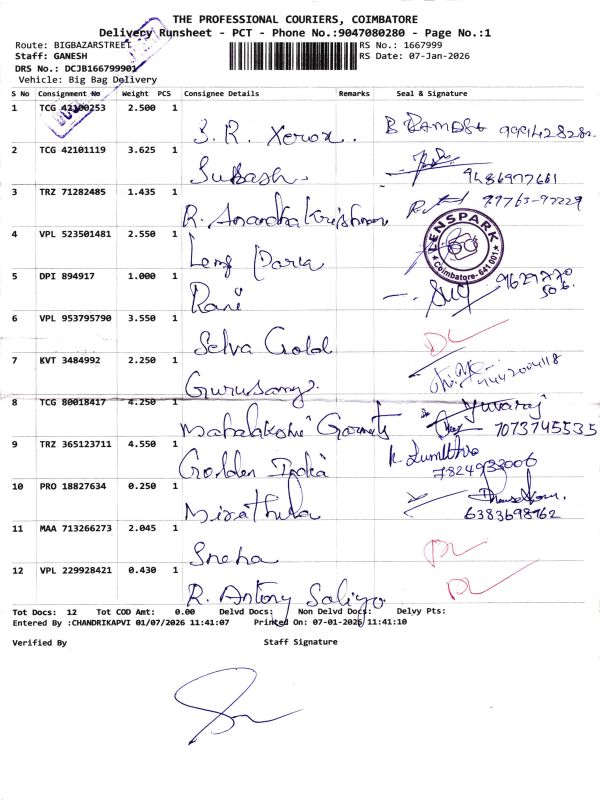 THE PROFESSIONAL COURIERS, COIMBATORE
Delivery Runsheet - PCT - Phone No.:9047080280 - Page No.:1
Route: BIGBAZARSTREET RS No.: 1667999
Staff: GANESH RS Date: 07-Jan-2026
DRS No.: DCJB166799901
Vehicle: Big Bag Delivery
S No Consignment No Weight PCS Consignee Details Remarks Seal & Signature
1 TCG 42100253 2.500 1
S. R. Xerox. 9994282820
2 TCG 42101119 3.625 1
Subash. 9486977661
3 TRZ 71282485 1.435 1
R. Anandha Krishnan 97763-97229
4 VPL 523501481 2.550 1
Lens Park LENSPARK Coimbatore-641001
5 DPI 894917 1.000 1
Rani 9629770 506
6 VPL 953795790 3.550 1
Selva Gold DL
7 KVT 3484992 2.250 1
Gurusamy. 9442004118
8 TCG 80018417 4.250 1
Mahalakshmi Garments Yuvaraj 7073745535
9 TRZ 365123711 4.550 1
Golden India 7824933006
10 PRO 18827634 0.250 1
Mirathula 6383698762
11 MAA 713266273 2.045 1
Sneha DL
12 VPL 229928421 0.430 1
R. Antony Saliyo DL
Tot Docs: 12 Tot COD Amt: 0.00 Delvd Docs: Non Delvd Docs: Delvy Pts:
Entered By :CHANDRIKAPVI 01/07/2026 11:41:07 Printed On: 07-01-2026 11:41:10
Verified By Staff Signature